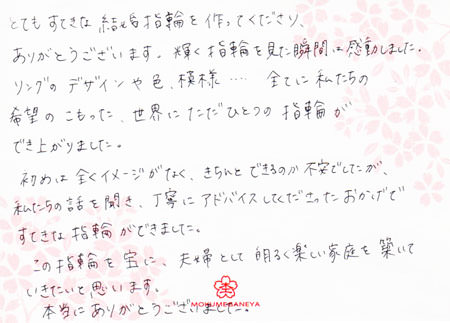 とてもすてきな結婚指輪を作ってくださり、
ありがとうございます。輝く指輪を見た瞬間は感動しました。
リングのデザインや色、模様… 全てに私たちの
希望のこもった、世界にただひとつの指輪が
でき上がりました。
初めは全くイメージがなく、きちんとできるのか不安でしたが、
私たちの話を聞き、丁寧にアドバイスしてくださったおかげで
すてきな指輪ができました。
この指輪を宝に、夫婦として明るく楽しい家庭を築いて
いきたいと思います。
本当にありがとうございました。
MOKUMEGANEYA